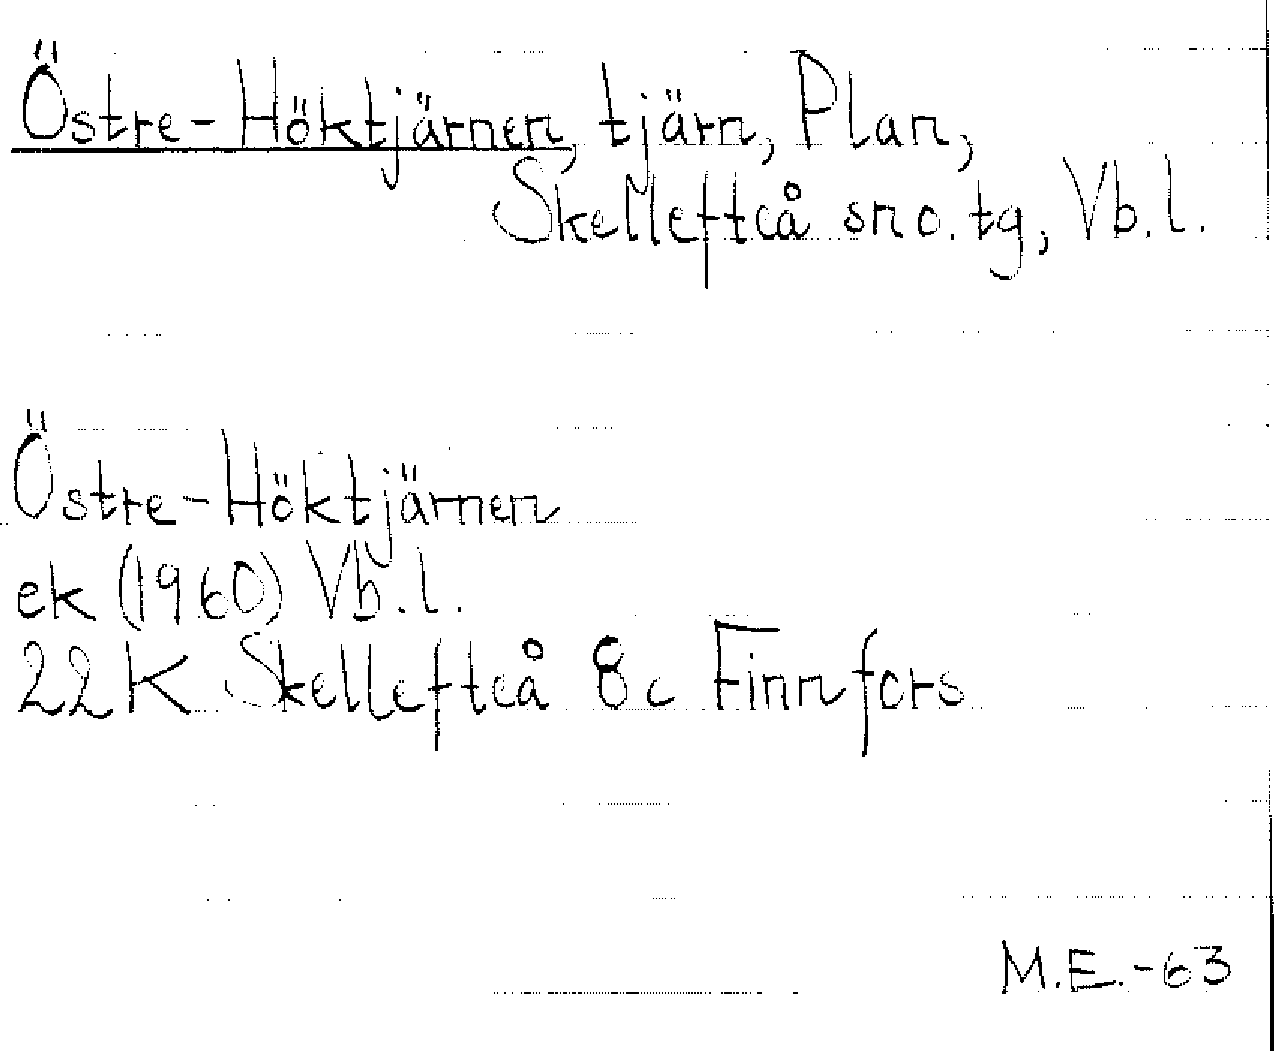 Östre-Höktjärnen, tjärn, Plan,
Skellefteå sn o. tg, Vb.l.
Östre-Höktjärnen
ek (1960) Vb.l.
22K Skellefteå 8c Finnfors
M.E.-63